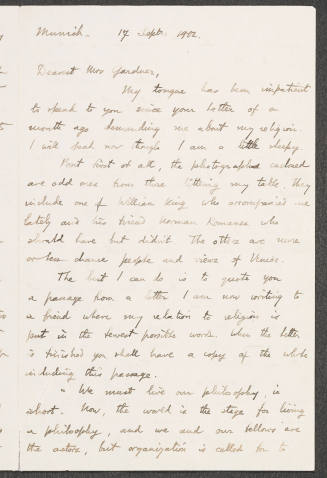 Munich. 17 Sept. 1902.
Dearest Mrs Gardner,
My tongue has been impatient
to speak to you since your letter of a
month ago demanding me about my religion.
I will speak now though I am a little sleepy.
But first of all, the photographs enclosed
are odd ones from those littering my table. They
include one of William King who accompanied me
lately and his friend Norman Romanes who
should have but didn't. The others are more
or less chance people and views of Venice.
The best I can do is to quote you
a passage from a letter I am now writing to
a friend where my relation to religion is
put in the fewest possible words. When the letter
is finished you shall have a copy of the whole
including this passage.
"We must live our philosophy, in
short. Now, the world is the stage for living
a philosophy, and we and our fellows are
the actors, but organization is called for to